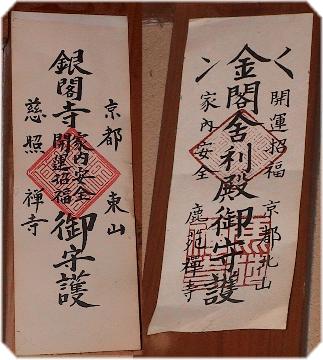 京都 東山
銀閣寺
家内安全
開運招福
御守護
慈照禅寺
開運招福
京都北山
金閣舎利殿御守護
家内安全
鹿苑禅寺